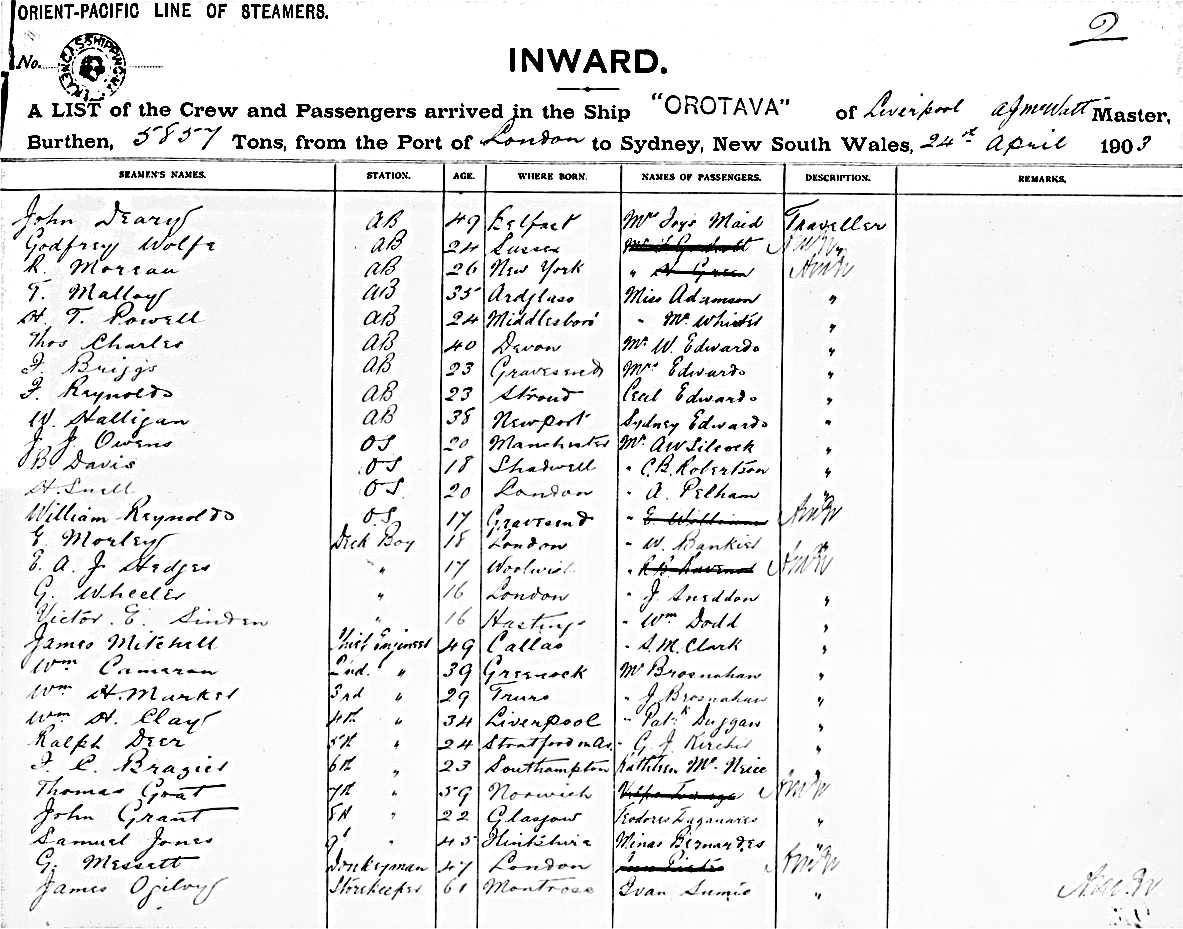 ORIENT-PACIFIC LINE OF STEAMERS.
2
No.
INWARD.
A LIST of the Crew and Passengers arrived in the Ship "OROTAVA" of Liverpool Master,
Burthen, 5857 Tons, from the Port of London to Sydney, New South Wales, 24th April 1903
SEAMEN'S NAMES. STATION. AGE. WHERE BORN. NAMES OF PASSENGERS. DESCRIPTION. REMARKS.
John Deary AB 49 Belfast Mrs Joys Maid Traveller
Godfrey Wolfe AB 24 Sussex
R. Moreau AB 26 New York " Green
T. Malloy AB 35 Ardglass Miss Adamson "
H. T. Powell AB 24 Middlesboro " "
Thos Charles AB 40 Devon Mr W. Edwards "
F. Briggs AB 23 Gravesend Mrs Edwards "
F. Reynolds AB 23 Stroud Cecil Edwards "
W. Halligan AB 38 Newport Sydney Edwards "
J. J. Owens OS 20 Manchester Mr AW Silcock "
B Davis OS 18 Shadwell " C.B. Robertson "
H. Snell OS 20 London " A. Pelham "
William Reynolds O.S 17 Gravesend " E William
E. Morley Deck Boy 18 London " W. Bankier "
E. A. J. Hedges " 17 Woolwich "
G. Wheeler " 16 London " J. Sneddon "
Victor. E. Sinden " 16 Hastings " Wm Dodd "
James Mitchell Chief Engineer 49 Callao " S.M. Clark "
Wm Cameron 2nd. " 39 Greenock Mr Brosnahan "
Wm H. Murkel 3rd " 29 Truro " J. Brosnahan "
Wm H. Clay 4th " 34 Liverpool " Patk Duggan "
Ralph Deer 5th " 24 Stratford on Av. " G. J. "
F. C. Brazier 6th " 23 Southampton Kathleen Mc Neice "
Thomas Goat 7th " 59 Norwich
John Grant 8th " 22 Glasgow Teodores "
Samuel Jones 9th " 45 Flintshire Minas Bernardes "
G. Messett Donkeyman 47 London
James Ogilvy Storekeeper 61 Montrose Ivan Sumic "